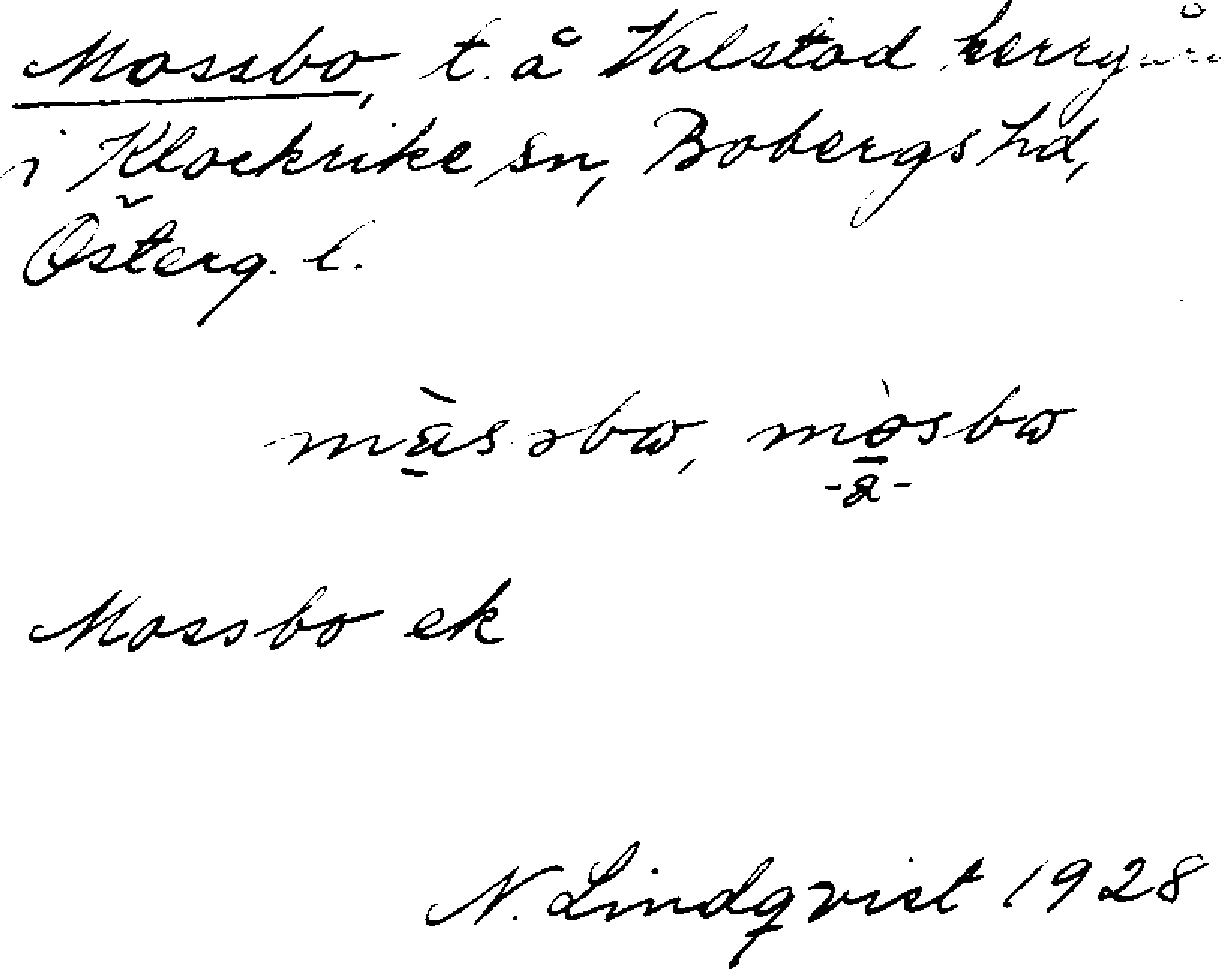 Mossbo, t. å Valstad herrgård
i Klockrike sn, Bobergs hd,
Österg. l.
måssbω, mòsbω
-a-
Mossbo ek
N. Lindqvist 1928